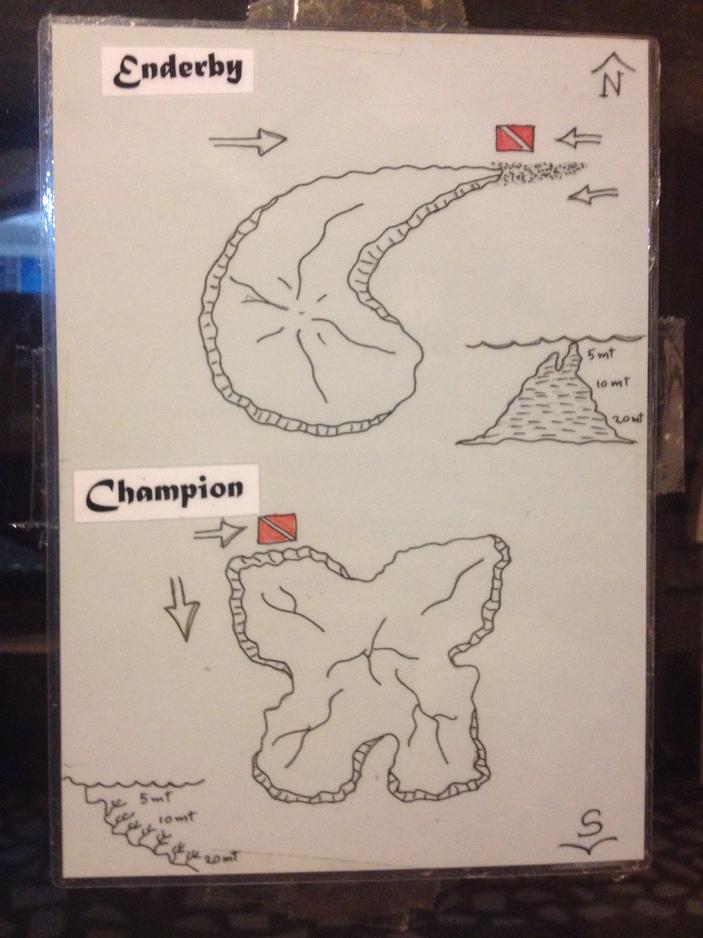 Enderby
N
5mt
10mt
20mt
Champion
5mt
10mt
20mt
S